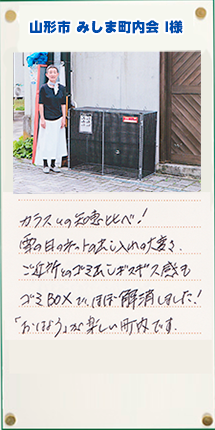 山形市 みしま町内会 I様
カラスとの知恵比べ!
雪の日のネットの出し入れの大変さ、
ご近所とのゴミ出しギスギス感も
ゴミBOXで、ほぼ解消しました!
「おはよう」が楽しい町内です。